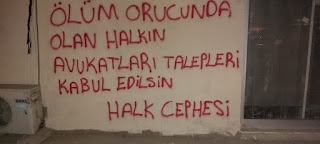 ÖLÜM ORUCUNDA
OLAN HALKIN
AVUKATLARI TALEPLERİ
KABUL EDİLSİN
HALK CEPHESİ